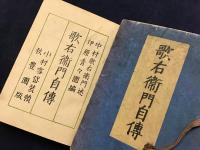 中村歌右衛門述
伊原青々園編
歌右衛門自傳
中村雪岱装幀
秋豊園版
歌右衛門自傳